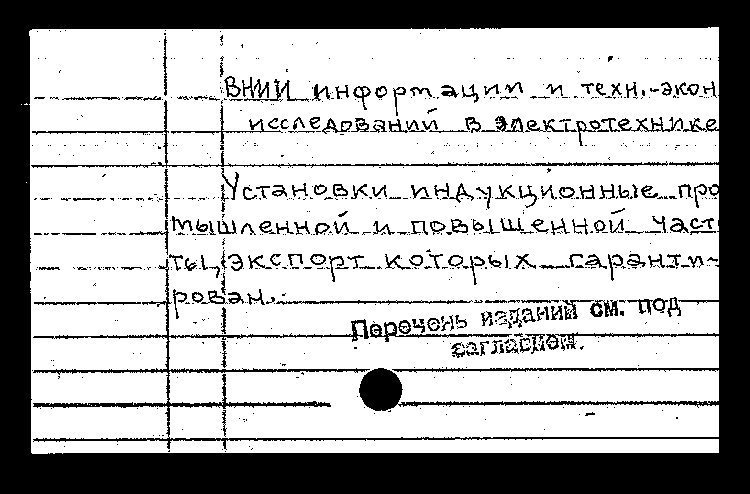 ВНИИ информации и техн.-экон
исследований в электротехнике
Установки индукционные про
мышленной и повышенной част
ты, экспорт которых гаранти-
рован.
Перечень изданий см. под
заглавием.